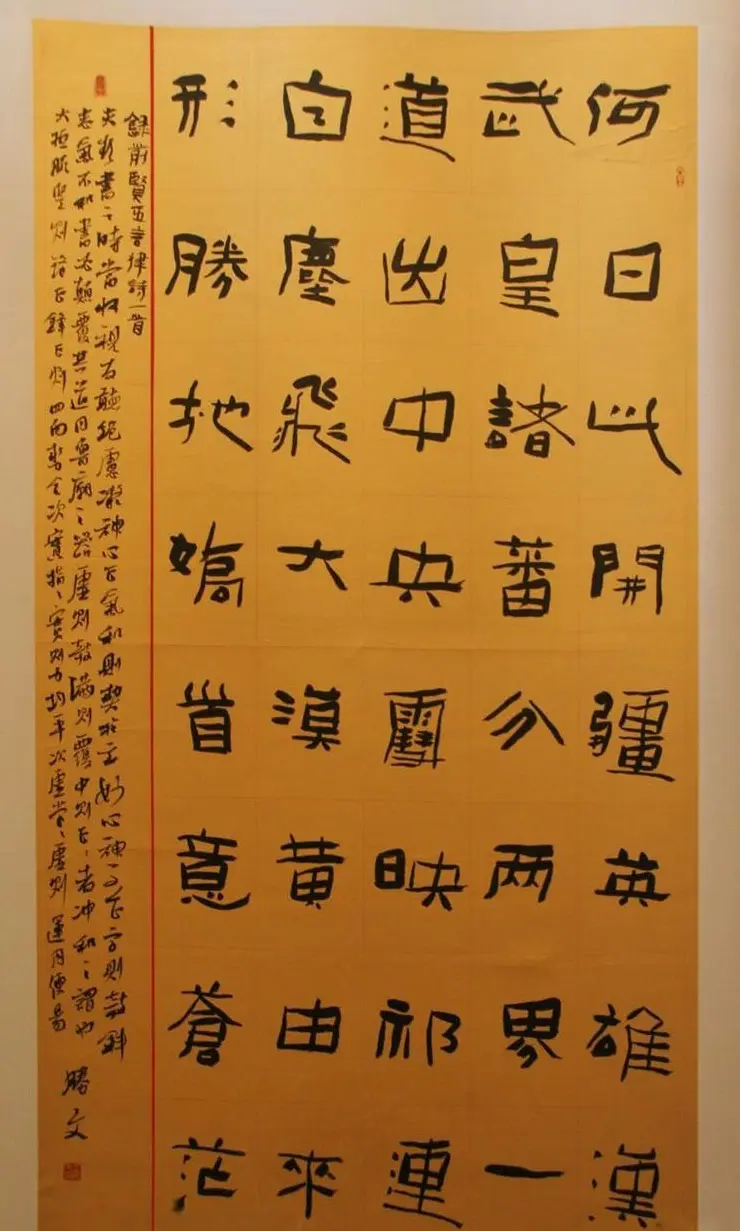 何日此開疆英雄漢
武皇諸蕃分两界一
道出中央雪映祁連
白塵飛大漠黄由來
形勝地矯首意蒼茫
錄前賢五言律詩一首
夫欲書之時當收視反聽絕慮凝神心正氣和則契於玄妙心神不正字則欹斜
志氣不和書必顛覆其道同魯廟之器虛則欹滿則覆中則正正者沖和之謂也
大抵腕竪則鋒正鋒正則四面勢全次實指指實則力均平次虛掌掌虛則運用便易
勝文